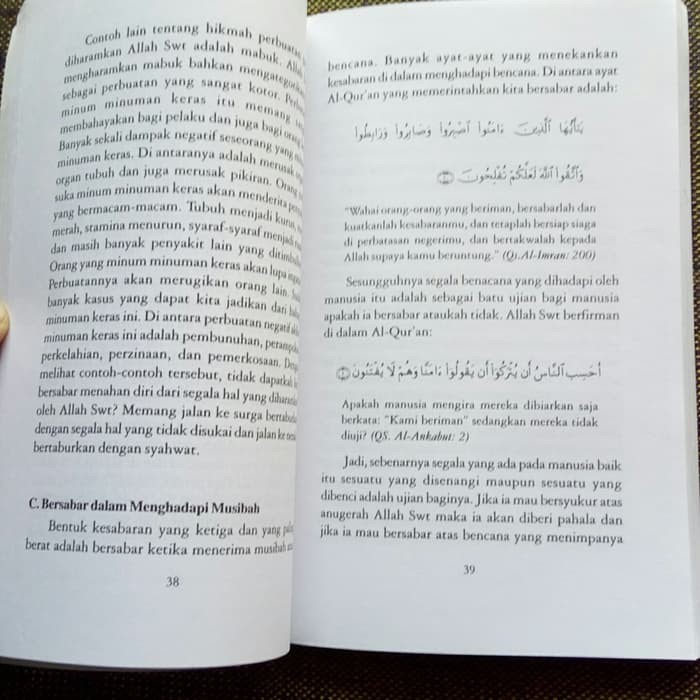 Contoh lain tentang hikmah perbuatan
diharamkan Allah Swt adalah mabuk.
mengharamkan mabuk bahkan
sebagai perbuatan yang sangat kotor.
minum minuman keras itu memang
membahayakan bagi pelaku dan juga bagi
Banyak sekali dampak negatif seseorang yang
minuman keras. Di antaranya adalah merusak
organ tubuh dan juga merusak pikiran. Orang
suka minum minuman keras akan menderita
yang bermacam-macam. Tubuh menjadi kurus,
merah, stamina menurun, syaraf-syaraf menjadi
dan masih banyak penyakit lain yang
Orang yang minum minuman keras akan lupa
Perbuatannya akan merugikan orang lain.
banyak kasus yang dapat kita jadikan dari
minuman keras ini. Di antara perbuatan negatif
minuman keras ini adalah pembunuhan,
perkelahian, perzinaan, dan pemerkosaan.
melihat contoh-contoh tersebut, tidak dapatkah
bersabar menahan diri dari segala hal yang
oleh Allah Swt? Memang jalan ke surga
dengan segala hal yang tidak disukai dan jalan ke
bertaburkan dengan syahwat.
C. Bersabar dalam Menghadapi Musibah
Bentuk kesabaran yang ketiga dan yang
berat adalah bersabar ketika menerima musibah
38
bencana. Banyak ayat-ayat yang menekankan
kesabaran di dalam menghadapi bencana. Di antara ayat
Al-Qur'an yang memerintahkan kita bersabar adalah:
يَٰٓأَيُّهَا ٱلَّذِينَ ءَامَنُوا۟ ٱصْبِرُوا۟ وَصَابِرُوا۟ وَرَابِطُوا۟
وَٱتَّقُوا۟ ٱللَّهَ لَعَلَّكُمْ تُفْلِحُونَ
"Wahai orang-orang yang beriman, bersabarlah dan
kuatkanlah kesabaranmu, dan tetaplah bersiap siaga
di perbatasan negerimu, dan bertakwalah kepada
Allah supaya kamu beruntung." (Qs.Al-Imran: 200)
Sesungguhnya segala benacana yang dihadapi oleh
manusia itu adalah sebagai batu ujian bagi manusia
apakah ia bersabar ataukah tidak. Allah Swt berfirman
di dalam Al-Qur'an:
أَحَسِبَ ٱلنَّاسُ أَن يُتْرَكُوٓا۟ أَن يَقُولُوٓا۟ ءَامَنَّا وَهُمْ لَا يُفْتَنُونَ
Apakah manusia mengira mereka dibiarkan saja
berkata: "Kami beriman" sedangkan mereka tidak
diuji? (QS. Al-Ankabut: 2)
Jadi, sebenarnya segala yang ada pada manusia baik
itu sesuatu yang disenangi maupun sesuatu yang
dibenci adalah ujian baginya. Jika ia mau bersyukur atas
anugerah Allah Swt maka ia akan diberi pahala dan
jika ia mau bersabar atas bencana yang menimpanya
39